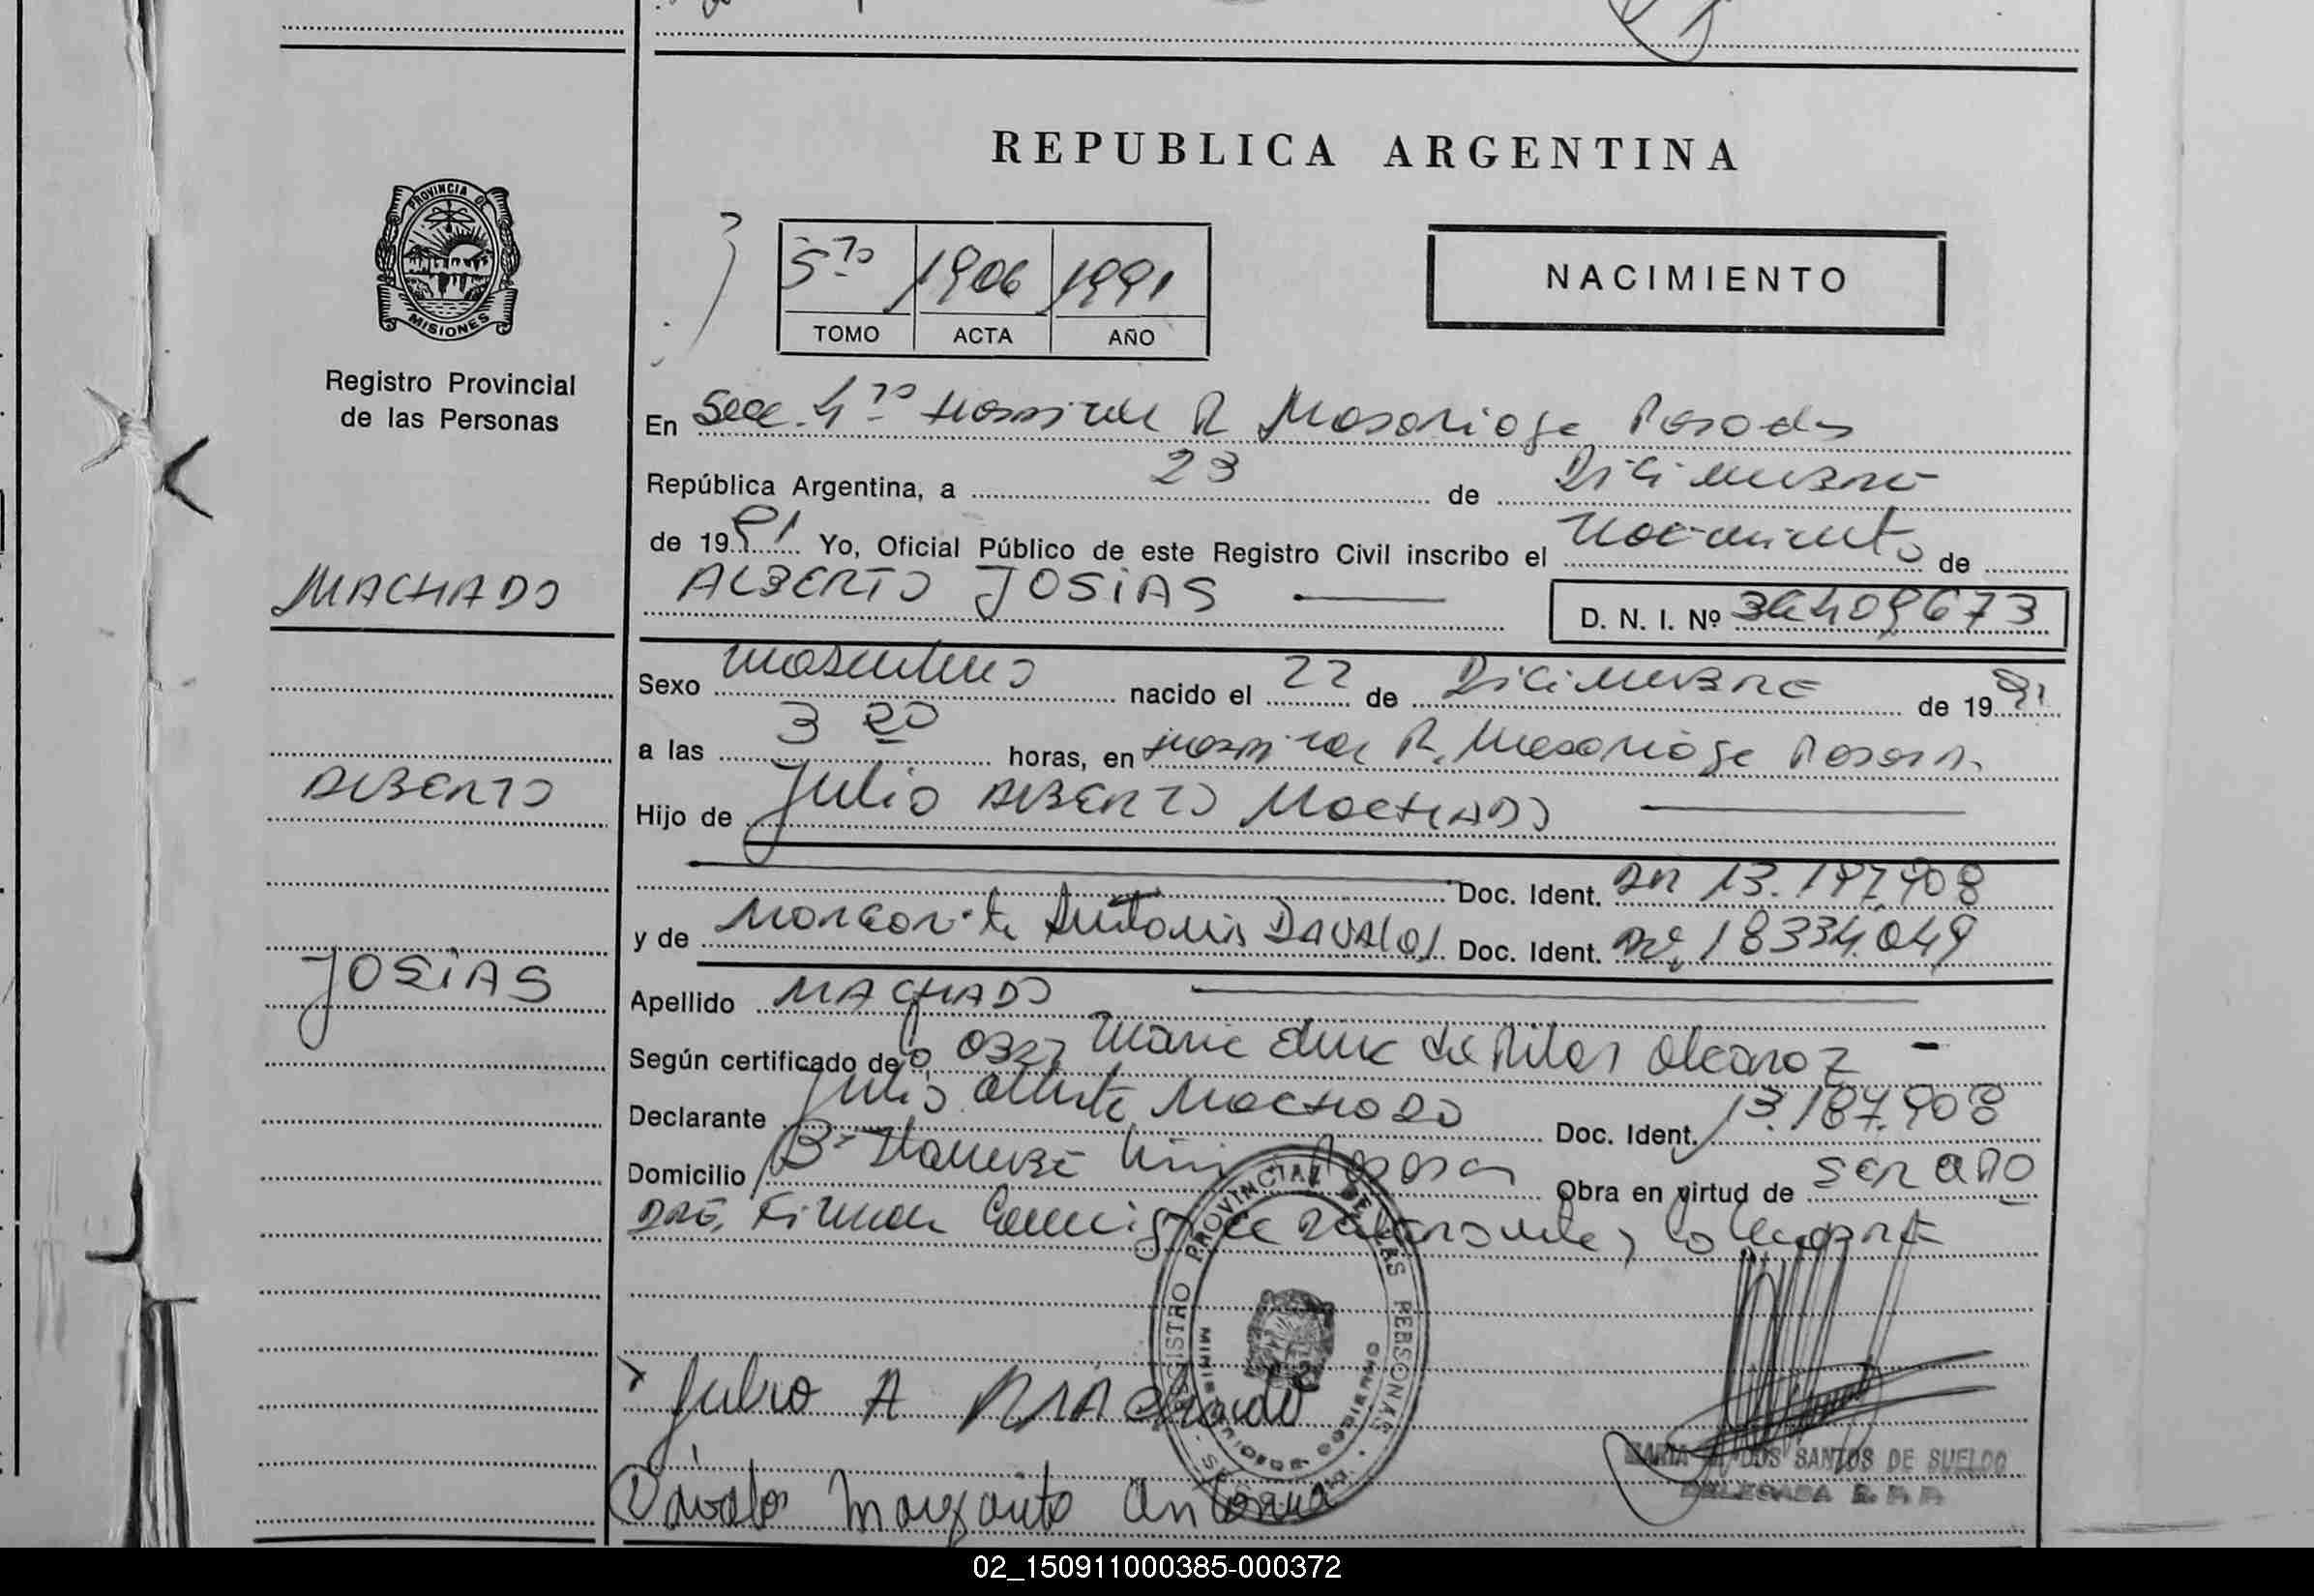 REPUBLICA ARGENTINA
PROVINCIA DE
MISIONES
Registro Provincial
de las Personas
5to 1906 1991
TOMO ACTA AÑO
NACIMIENTO
En Secc. 4ta Hospital R Madariaga Posadas
República Argentina, a 23 de Diciembre
de 1991 Yo, Oficial Público de este Registro Civil inscribo el Nacimiento de
MACHADO
ALBERTO JOSIAS
D. N. I. Nº 36409673
Sexo masculino nacido el 22 de Diciembre de 1991
a las 3 20 horas, en Hospital R. Madariaga Posadas
ALBERTO
Hijo de Julio ALBERTO MACHADO
Doc. Ident. DNI 13.187.908
y de Margarita Antonia DAVALOS Doc. Ident. 18334.049
JOSIAS
Apellido MACHADO
Según certificado de 0327 Maria del Pilar Alcaraz
Declarante Julio Alberto Machado Doc. Ident. 13.187.908
Domicilio Posadas Obra en virtud de SER EL PADRE
Firman Conmigo el Declarante y la Madre
REGISTRO PROVINCIAL DE LAS PERSONAS
MINISTERIO DE GOBIERNO
Julio A MAchado
Davalos Margarita Antonia
MARIA DOS SANTOS DE SUELDO
DELEGADA R. P. P.
02_150911000385-000372